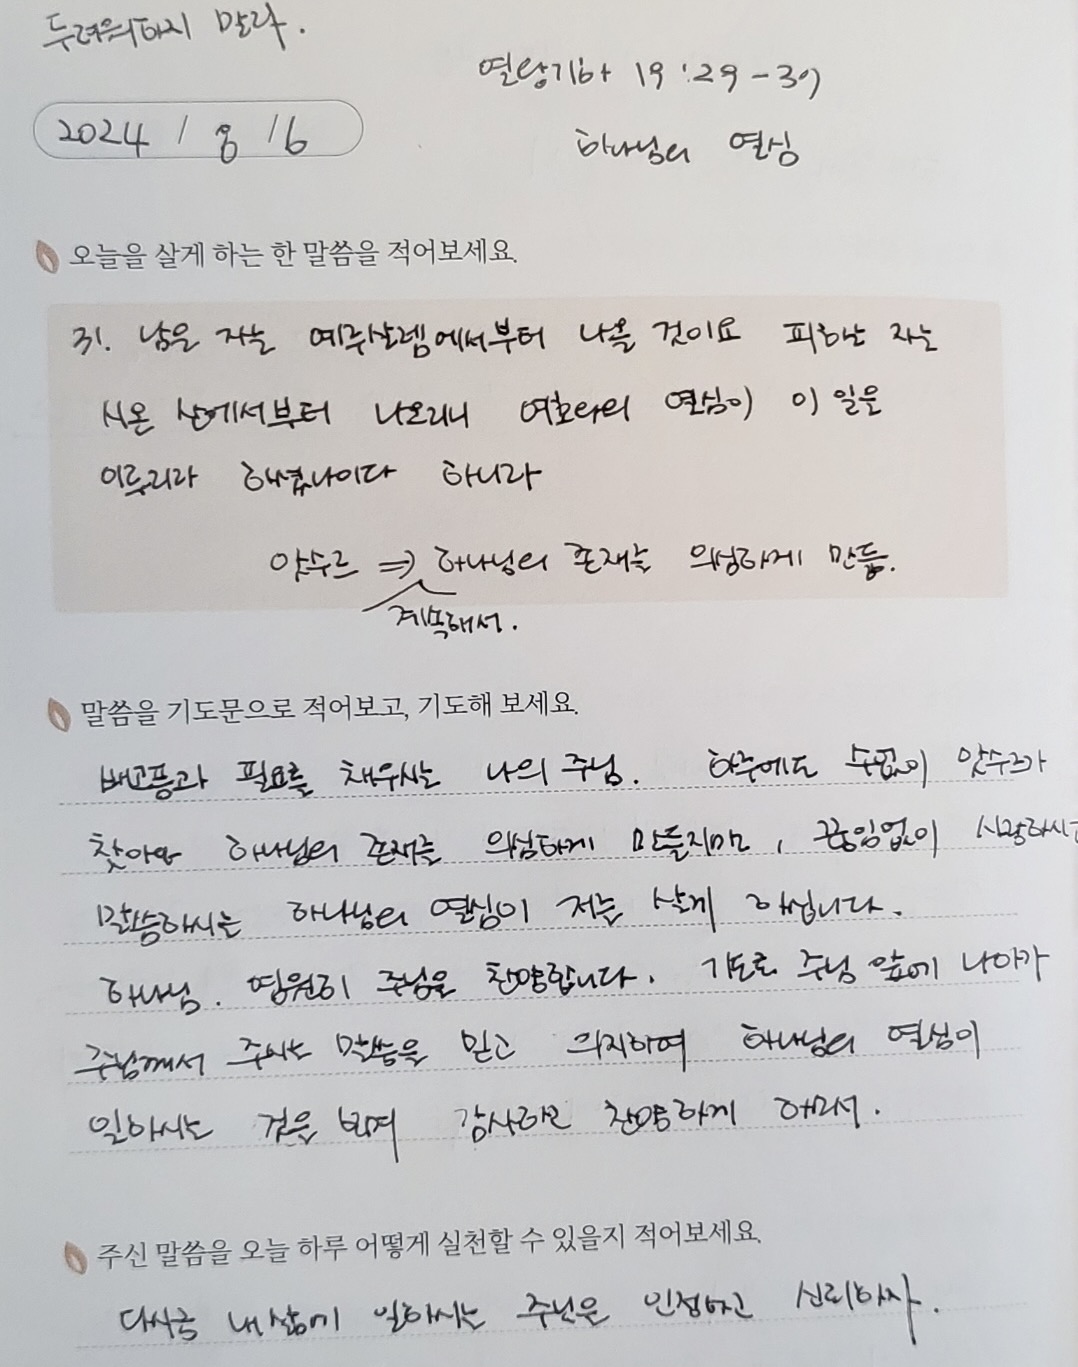 두려워하지 말라.
열왕기하 19:29-37
2024 / 8 / 6
하나님의 열심
오늘을 살게 하는 한 말씀을 적어보세요.
31. 남은 자는 예루살렘에서부터 나올 것이요 피하는 자는
시온 산에서부터 나오리니 여호와의 열심이 이 일을
이루리라 하셨나이다 하니라
앗수르 ⇒ 하나님의 존재를 의심하게 만듦.
계속해서.
말씀을 기도문으로 적어보고, 기도해 보세요.
배고픔과 필요를 채우시는 나의 주님. 하루에도 수없이 앗수르가
찾아와 하나님의 존재를 의심하게 만들지만, 끊임없이 사랑하시고
말씀하시는 하나님의 열심이 저를 살게 하십니다.
하나님. 영원히 주님을 찬양합니다. 기도로 주님 앞에 나아가
주님께서 주시는 말씀을 믿고 의지하여 하나님의 열심이
일하시는 것을 보며 감사하고 찬양하게 하소서.
주신 말씀을 오늘 하루 어떻게 실천할 수 있을지 적어보세요.
내 삶에 일하시는 주님을 인정하고 신뢰하자.